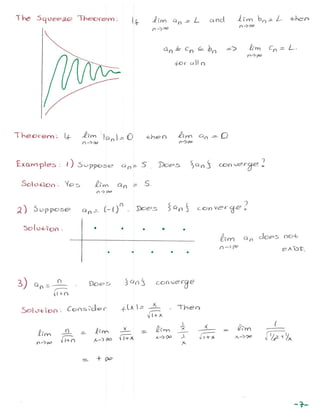 The Squeeze Theorem: If lim n→∞ an = L and lim n→∞ bn = L then
an ≤ cn ≤ bn => lim n→∞ cn = L.
for all n
Theorem: If lim n→∞ |an| = 0 then lim n→∞ an = 0
Examples: 1) Suppose an = 5. Does {an} converge?
Solution: Yes lim n→∞ an = 5.
2) Suppose an = (-1)^n. Does {an} converge?
Solution:
lim n→∞ an does not exist.
3) an = n/√(1+n). Does {an} converge
Solution: Consider f(x) = x/√(1+x). Then
lim n→∞ n/√(1+n) = lim x→∞ x/√(1+x) = lim x→∞ (1/x)/(1/x) x/√(1+x) = lim x→∞ 1/√(1/x²+1/x)
= +∞
-7-